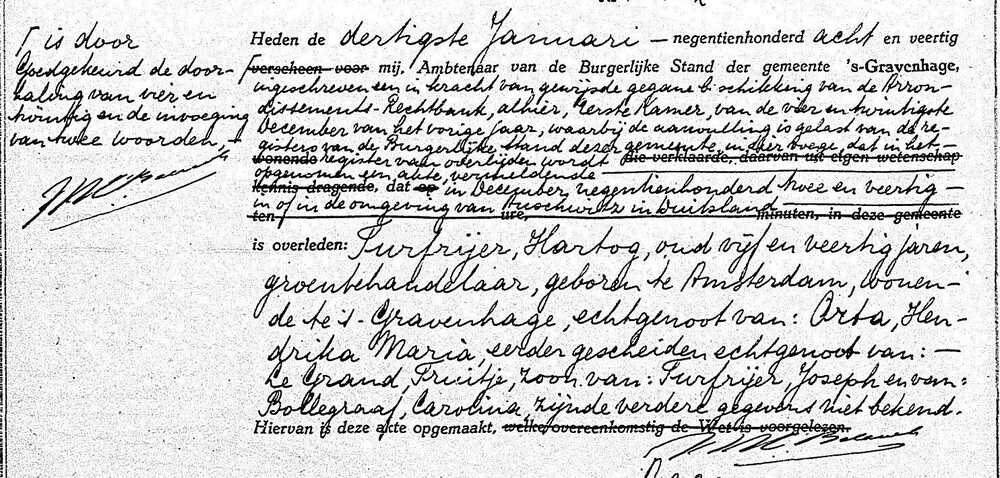 Γ is door
Goedgekeurd de door-
haling van vier en
twintig en de invoeging
van twee woorden, -
Heden de dertigste Januari — negentienhonderd acht en veertig
verscheen voor mij, Ambtenaar van de Burgerlijke Stand der gemeente 's-Gravenhage,
ingeschreven een in kracht van gewijsde gegane beschikking van de Arron-
dissements-Rechtbank, alhier, Eerste Kamer, van de vier en twintigste
December van het vorige jaar, waarbij de aanvulling is gelast van de re-
gisters van de Burgerlijke Stand dezer gemeente, in dier voege, dat in het-
wonende register van overlijden wordt die verklaarde, daarvan uit eigen wetenschap
opgenomen een akte, vermeldende
kennis dragende, dat op in December negentienhonderd twee en veertig —
in of in de omgeving van Auschwitz in Duitsland
ten ure, minuten, in deze gemeente
is overleden: Turfrijer, Hartog, oud vijf en veertig jaren,
groentehandelaar, geboren te Amsterdam, wonen-
de te 's-Gravenhage, echtgenoot van: Orta, Hen-
drika Maria, eerder gescheiden echtgenoot van: —
Le Grand, Truitje, zoon van: Turfrijer, Joseph en van:
Bollegraaf, Carolina, zijnde verdere gegevens niet bekend.
Hiervan is deze akte opgemaakt, welke overeenkomstig de Wet is voorgelezen.